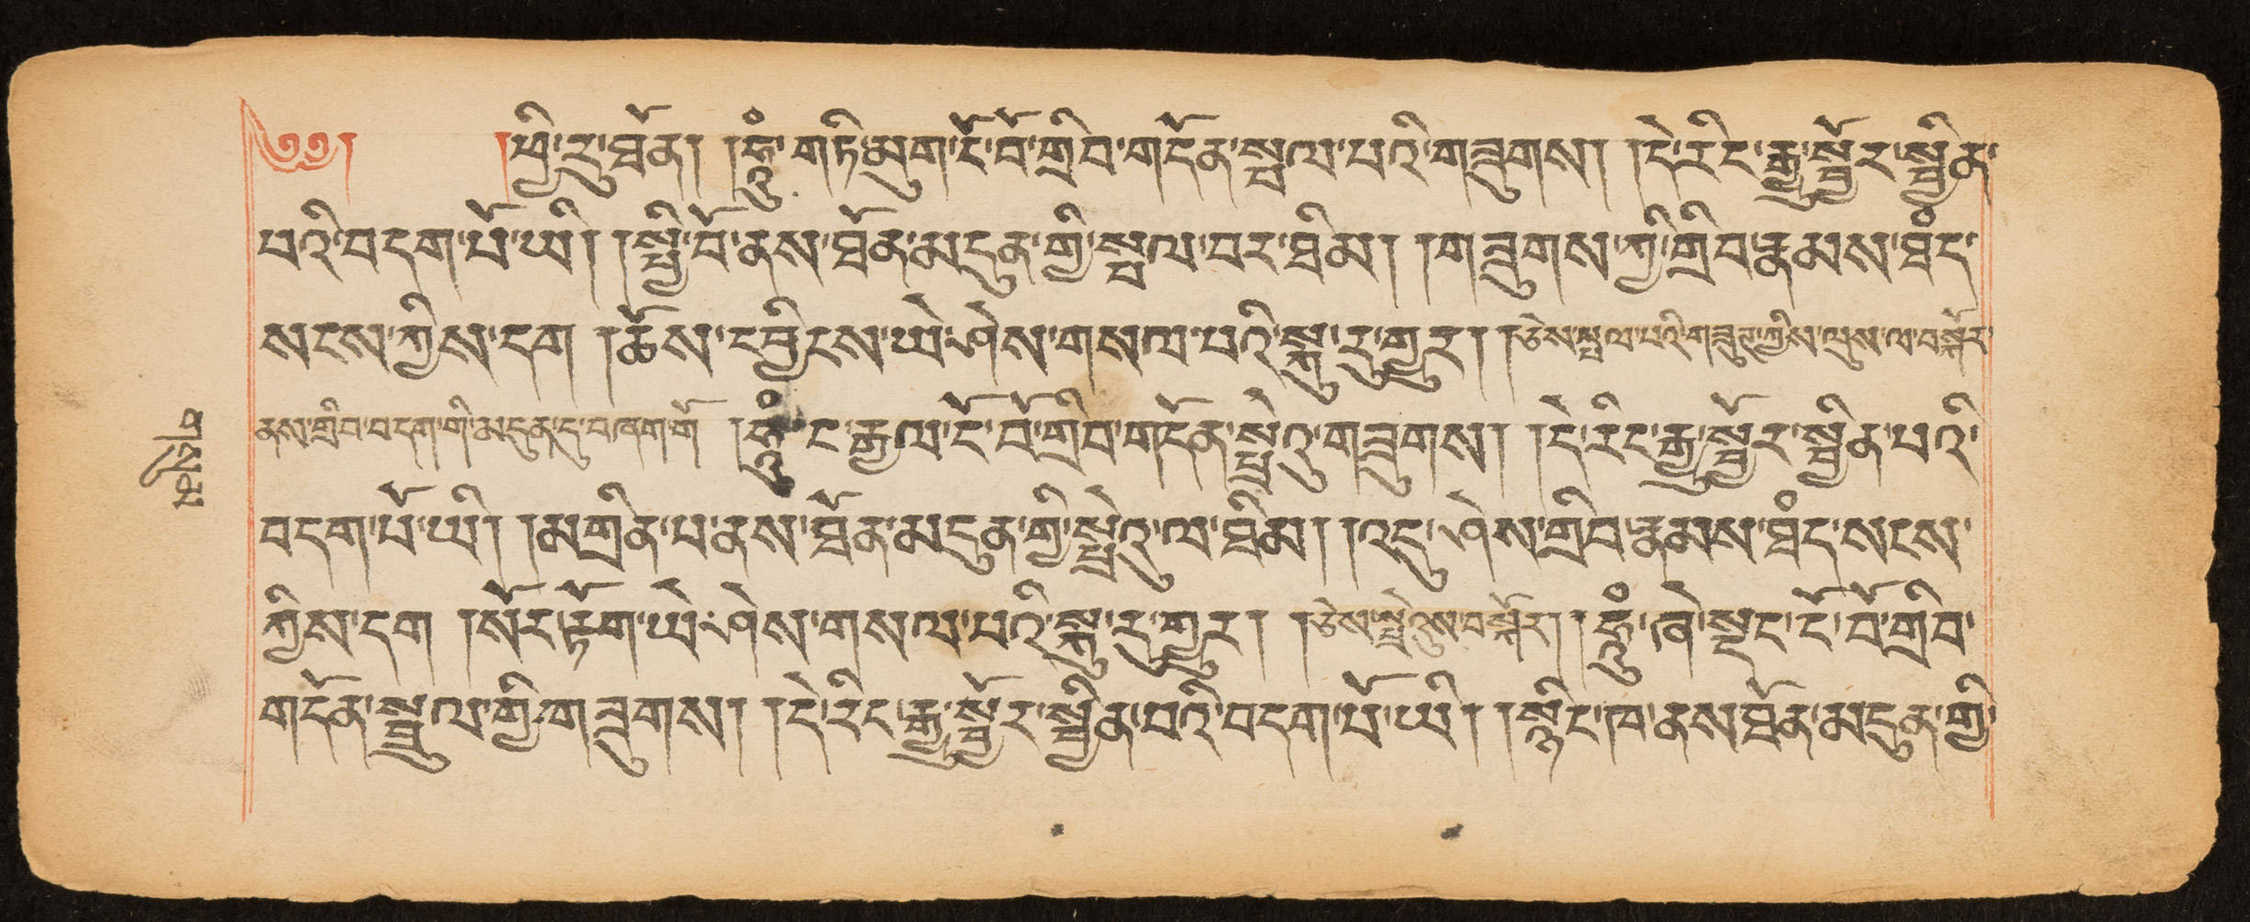 ༄༅། །ཕྱི་རུ་ཐོན། །ཧཱུྃ་གཏི་མུག་ངོ་བོ་གྲིབ་གདོན་སྦལ་པའི་གཟུགས། །དེ་རིང་རྒྱུ་སྦྱོར་སྦྱིན་
པའི་བདག་པོ་ཡི། །སྤྱི་བོ་ནས་ཐོན་མདུན་གྱི་སྦལ་བར་ཐིམ། །གཟུགས་ཀྱི་གྲིབ་རྣམས་ཐིང་
སངས་ཀྱིས་དག །ཆོས་དབྱིངས་ཡེ་ཤེས་གསལ་བའི་སྐུ་རུ་གྱུར། །ཅེས་སྦལ་པའི་གཟུགས་ཀྱིས་ལུས་ལ་བསྐོར་
ནས་གྲིབ་བདག་གི་མདུན་དུ་བཞག་གོ །ཧཱུྃ་ང་རྒྱལ་ངོ་བོ་གྲིབ་གདོན་སྤྲེའུ་གཟུགས། །དེ་རིང་རྒྱུ་སྦྱོར་སྦྱིན་པའི་
བདག་པོ་ཡི། །མགྲིན་པ་ནས་ཐོན་མདུན་གྱི་སྤྲེའུ་ལ་ཐིམ། །འདུ་ཤེས་གྲིབ་རྣམས་ཐིང་སངས་
ཀྱིས་དག །སོར་རྟོག་ཡེ་ཤེས་གསལ་བའི་སྐུ་རུ་གྱུར། །ཅེས་སྤྲེའུས་བསྐོར། །ཧཱུྃ་ཞེ་སྡང་ངོ་བོ་གྲིབ་
གདོན་སྦྲུལ་གྱི་གཟུགས། །དེ་རིང་རྒྱུ་སྦྱོར་སྦྱིན་པའི་བདག་པོ་ཡི། །སྙིང་ཁ་ནས་ཐོན་མདུན་གྱི་